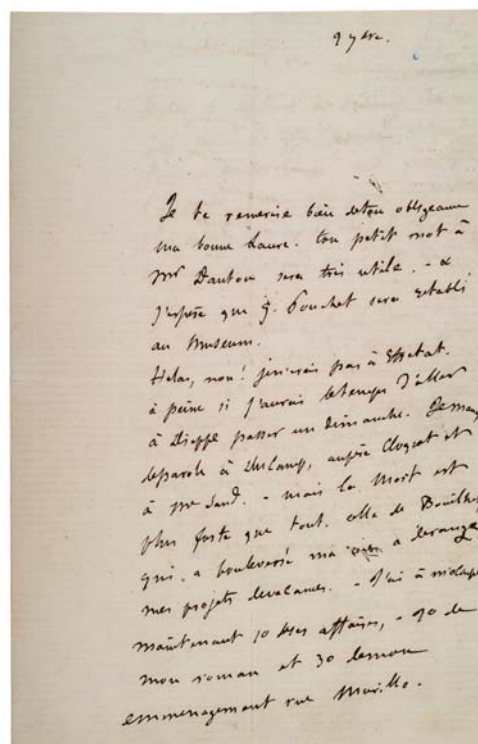 9 7bre.
Je te remercie bien de ton obligeance
ma bonne Laure. ton petit mot à
Mr Danton sera très utile. - &
J'espère que G. Pouchet sera rétabli
au Museum.
Helas, non! je n'irais pas à Etretat.
à peine si j'aurais le temps d'aller
à Dieppe passer un dimanche. Je manq
de parole à Ducamp, auprès Cloquet et
à Me Sand. - mais la Mort est
plus forte que tout. celle de Bouilhet
qui a bouleversé ma vie a derangé
mes projets de vacances. - J'ai à m'occuper
maintenant 1o de ses affaires, - 2o de
mon roman et 3o de mon
emmenagement rue Murillo.